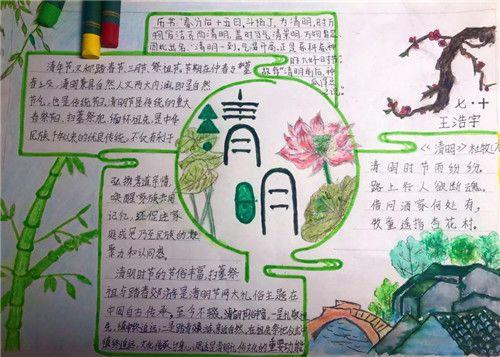 历书：春分后十五日，斗指丁，为清明，时万
物皆洁齐而清明，盖时当气清景明，万物皆显，
因此出名。"清明一到，气温升高，正是春耕春种
的大好时节，
故有"清明前后，种
清年节，又称踏春节、三月节、祭祖节，节期在仲春与暮
春之交，清明兼具自然人文两大内涵，即是自然
节气，也是传统节日，清明节是传统的重大
春祭节，扫墓祭祀、缅怀祖先，是中华
民族千年以来的优良传统，不仅有利于
弘扬孝道亲情、
唤醒家族共同
记忆，还促进家
庭成员乃至民族的凝
聚力和认同感。
清明时节的节俗丰富，扫墓祭
祖与踏春郊游是清明节两大礼俗主题在
中国自古传承，至今不辍。
清明
七·十
王浩宇
《清明》杜牧
清明时节雨纷纷，
路上行人欲断魂。
借问酒家何处有，
牧童遥指杏花村。